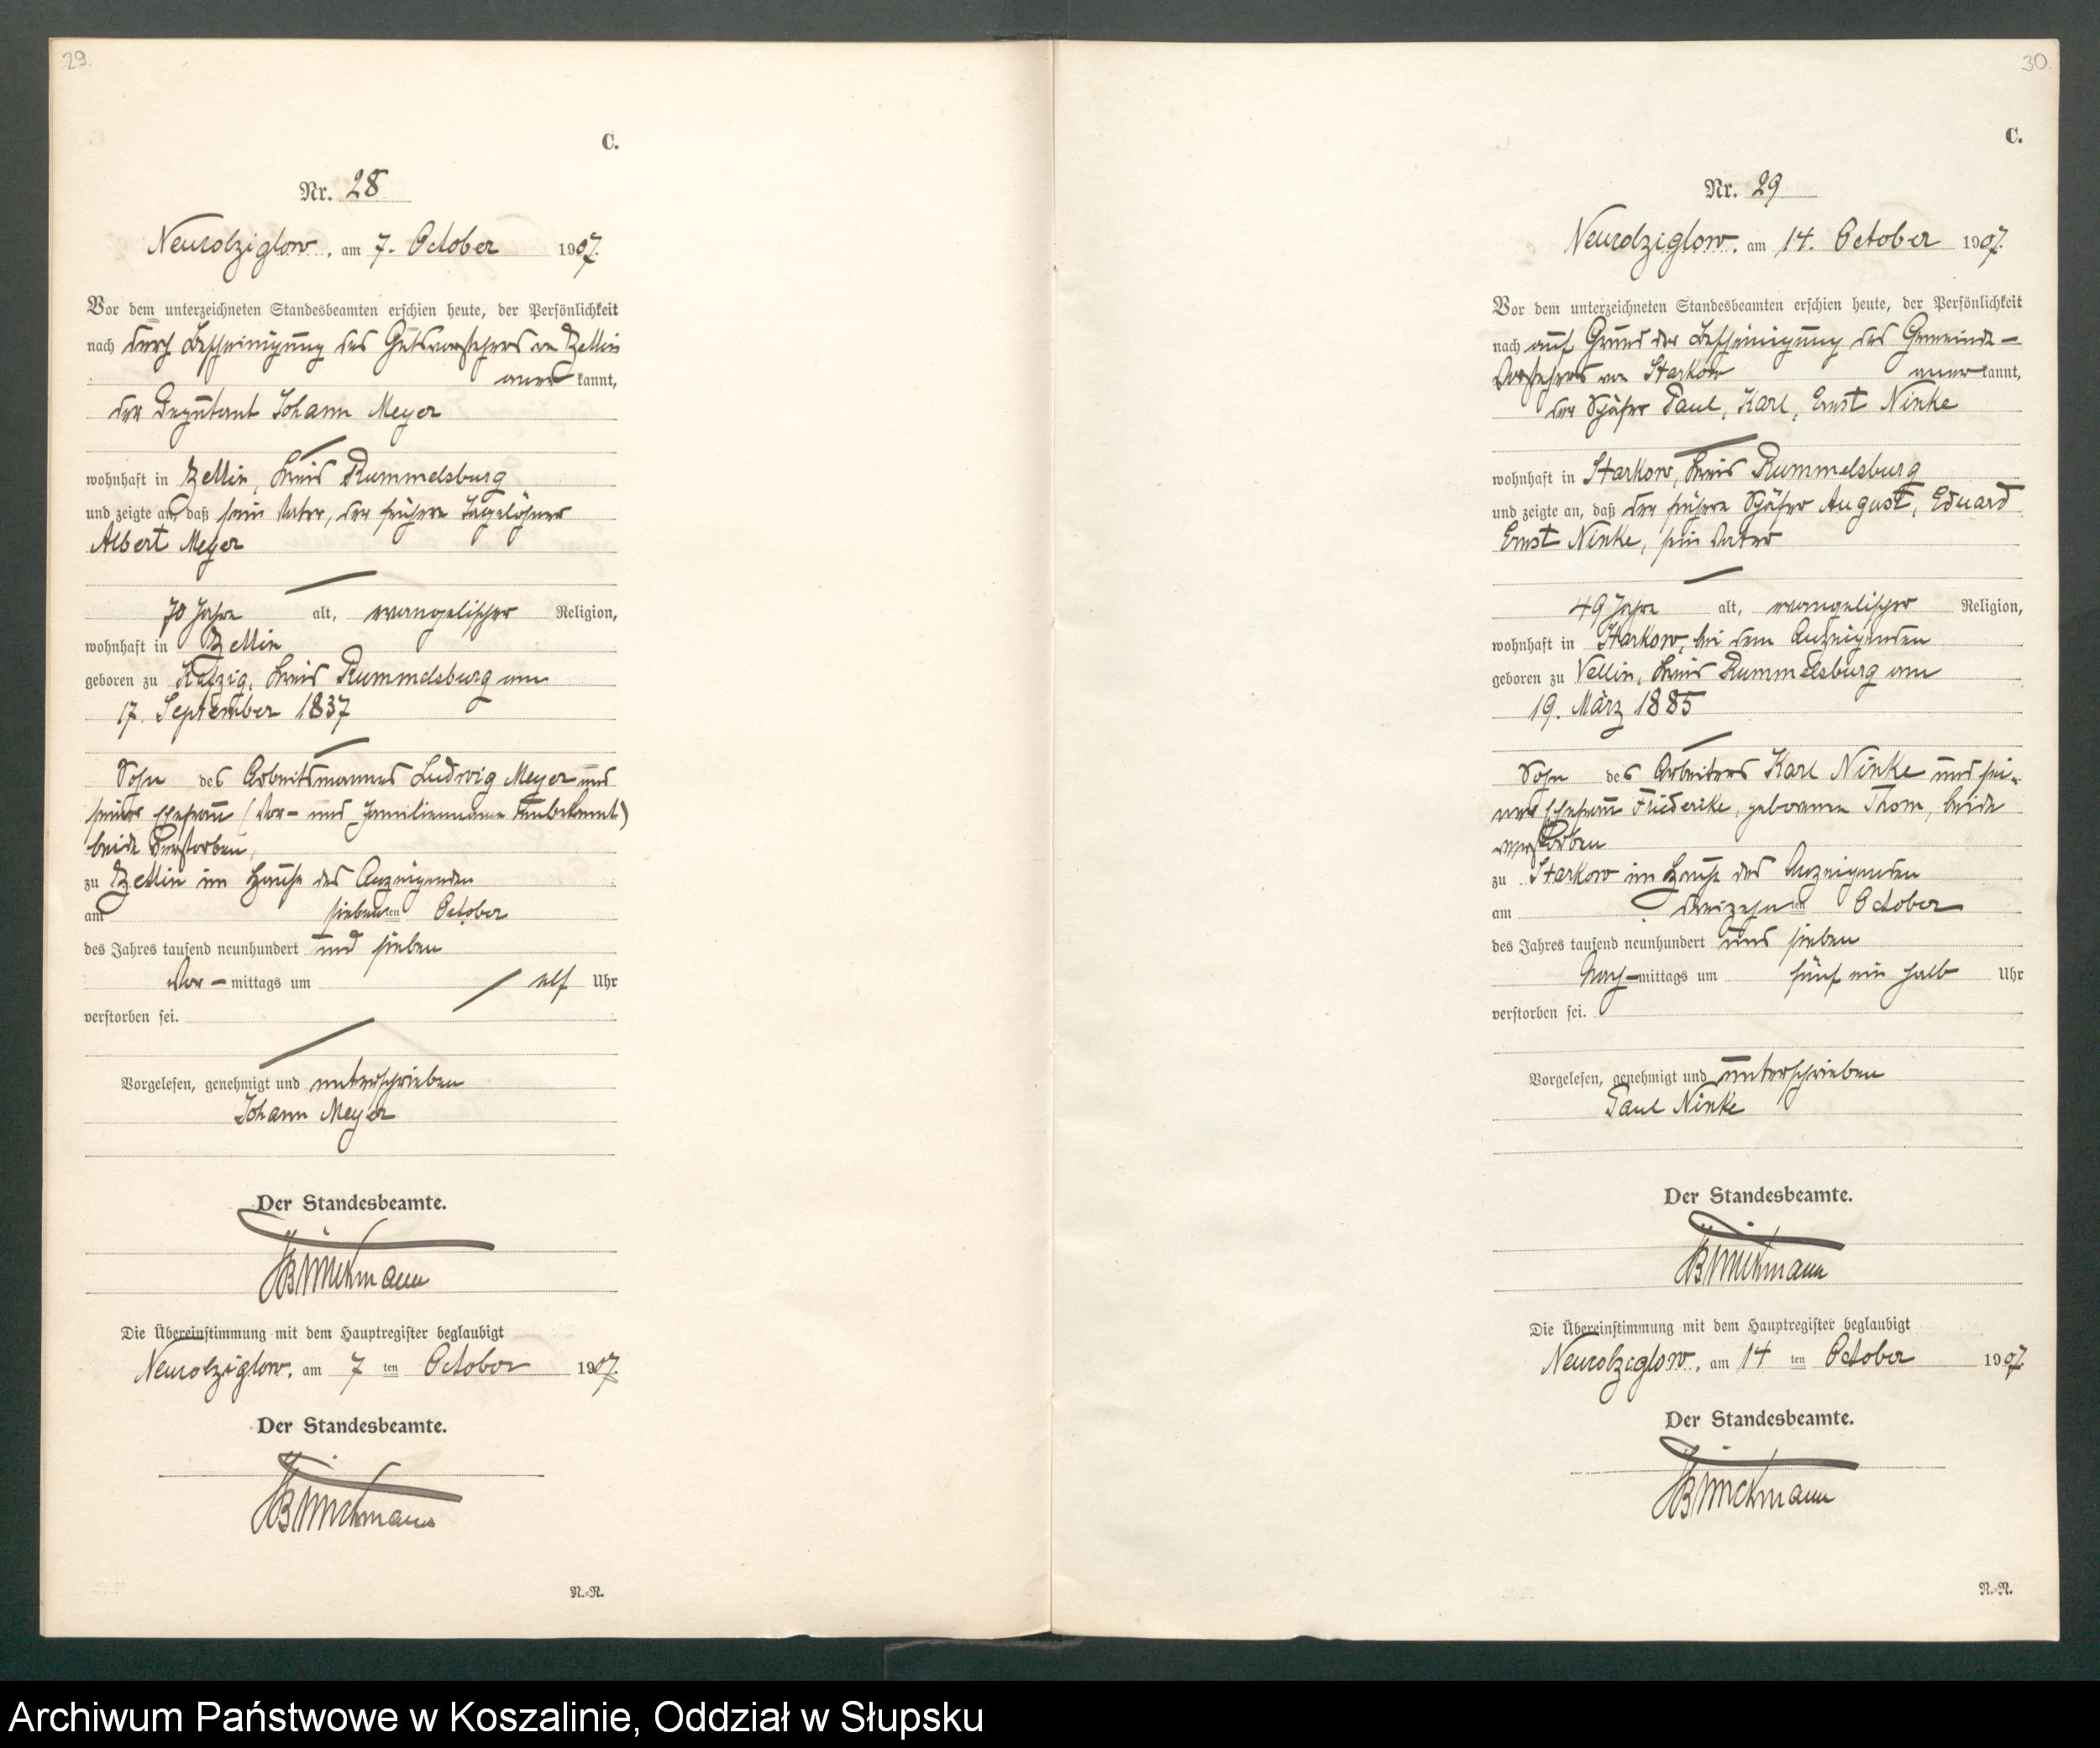 29.
C.
Nr. 28
Neukolziglow, am 7. October 1907.
Vor dem unterzeichneten Standesbeamten erschien heute, der Persönlichkeit
nach durch Bescheinigung des Gutsvorstehers von Zettin
anerkannt,
der Deputant Johann Meyer
wohnhaft in Zettin, Kreis Rummelsburg
und zeigte an, daß sein Vater, der frühere Tagelöhner
Albert Meyer
70 Jahre alt, evangelischer Religion,
wohnhaft in Zettin
geboren zu Kreis Rummelsburg am
17. September 1837
Sohn des Arbeitsmannes Ludwig Meyer und
seiner Ehefrau (Vor- und Familienname unbekannt)
beide verstorben,
zu Zettin im Hause des Anzeigenden
am siebenten October
des Jahres tausend neunhundert und sieben
Vor-mittags um elf Uhr
verstorben sei.
Vorgelesen, genehmigt und unterschrieben
Johann Meyer
Der Standesbeamte.
Die Übereinstimmung mit dem Hauptregister beglaubigt
Neukolziglow, am 7 ten October 1907.
Der Standesbeamte.
N.-N.
30.
C.
Nr. 29
Neukolziglow, am 14. October 1907.
Vor dem unterzeichneten Standesbeamten erschien heute, der Persönlichkeit
nach auf Grund der Bescheinigung des Gemeinde-
Vorstehers von Starkow anerkannt,
der Schäfer Paul, Karl, Ernst Ninke
wohnhaft in Starkow, Kreis Rummelsburg
und zeigte an, daß der frühere Schäfer August, Eduard
Ernst Ninke, sein Vater
49 Jahre alt, evangelischer Religion,
wohnhaft in Starkow, bei dem Anzeigenden
geboren zu Vellin, Kreis Rummelsburg am
19. März 1885
Sohn des Arbeiters Karl Ninke und sei-
ner Ehefrau Friederike, geborenen Thom, beide
verstorben
zu Starkow im Hause des Anzeigenden
am dreizehnten October
des Jahres tausend neunhundert und sieben
Nach-mittags um fünf ein halb Uhr
verstorben sei.
Vorgelesen, genehmigt und unterschrieben
Paul Ninke
Der Standesbeamte.
Die Übereinstimmung mit dem Hauptregister beglaubigt
Neukolziglow, am 14 ten October 1907.
Der Standesbeamte.
N.-N.
Archiwum Państwowe w Koszalinie, Oddział w Słupsku